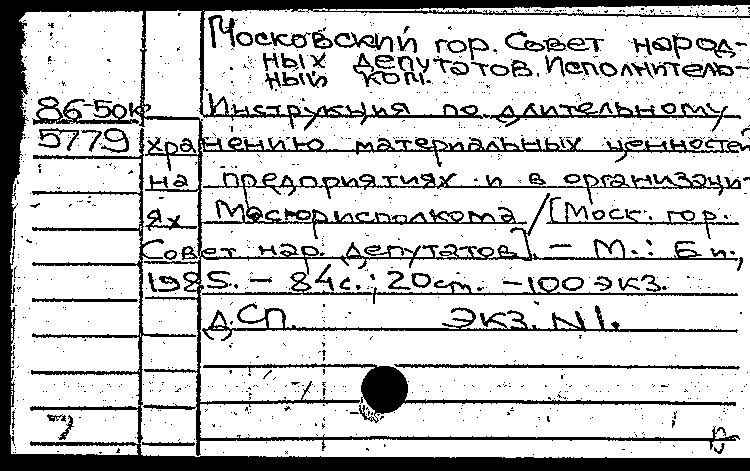 Московский гор. Совет народ-
ных депутатов. Исполнитель-
ный ком.
86-50к
5779
Инструкция по длительному
хранению материальных ценностей
на предприятиях и в организаци-
ях Мосгорисполкома / [Моск. гор.
Совет нар. депутатов]. — М.: Б и.,
1985. — 84с.; 20см. — 100 экз.
ДСП. Экз. N 1.
7